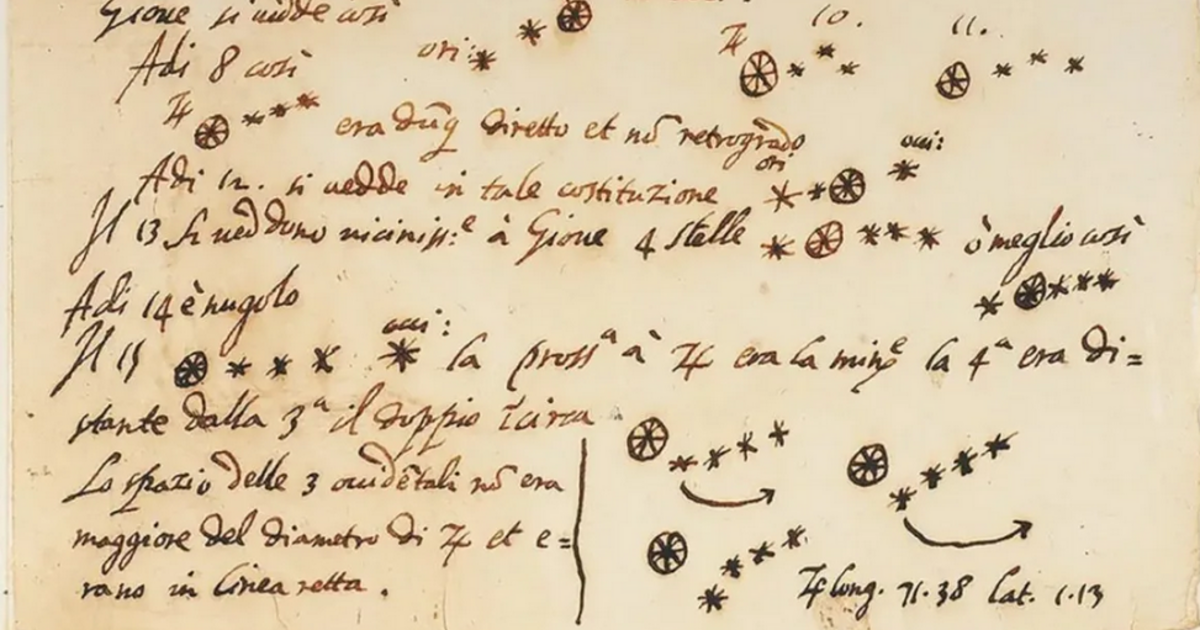 Gioue si uidde così
Adi 8 così ori:
♃ 10. 11.
♃ era dūq diretto et nõ retrogrado
Adi 12. si uedde in tale costituzione ori occi:
Il 13 si ueddono uiciniss:e à Gioue 4 stelle ò meglio così
Adi 14 è nugolo
Il 15 occi: la prossa à ♃ era la mine la 4a era di=
stante dalla 3a il doppio īcirca
Lo spazio delle 3 occidẽtali nõ era
maggiore del diametro di ♃ et e=
rano in linea retta.
♃ long. 71.38 lat. 1.13